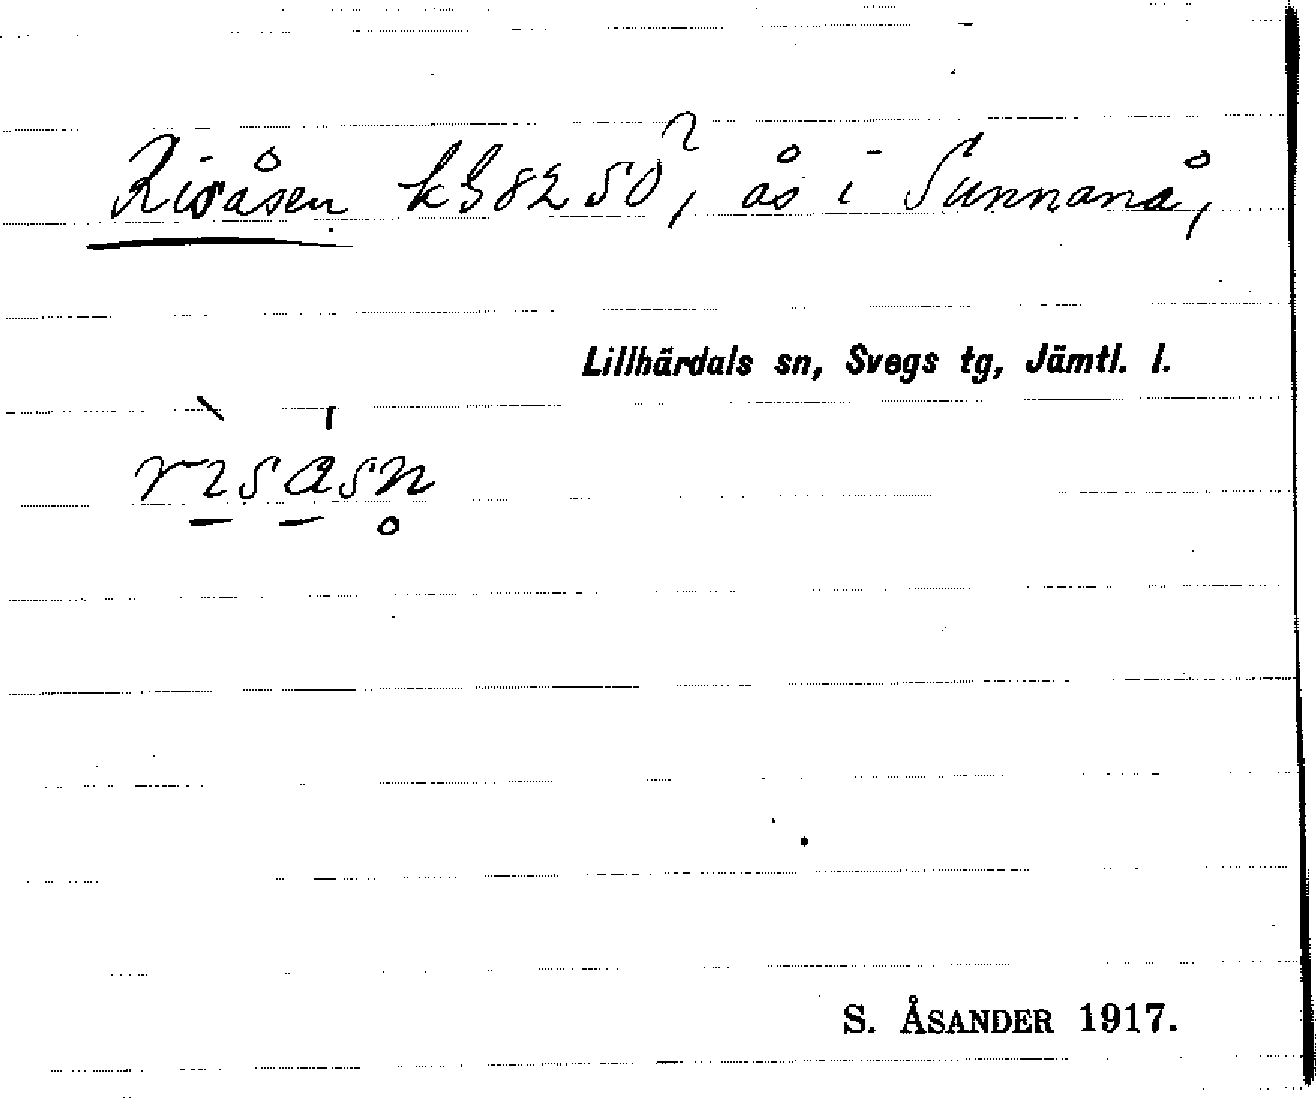 Risåsen k38250?, ås i Sunnanå,
Lillhärdals sn, Svegs tg, Jämtl. l.
rısåsn̥
S. ÅSANDER 1917.